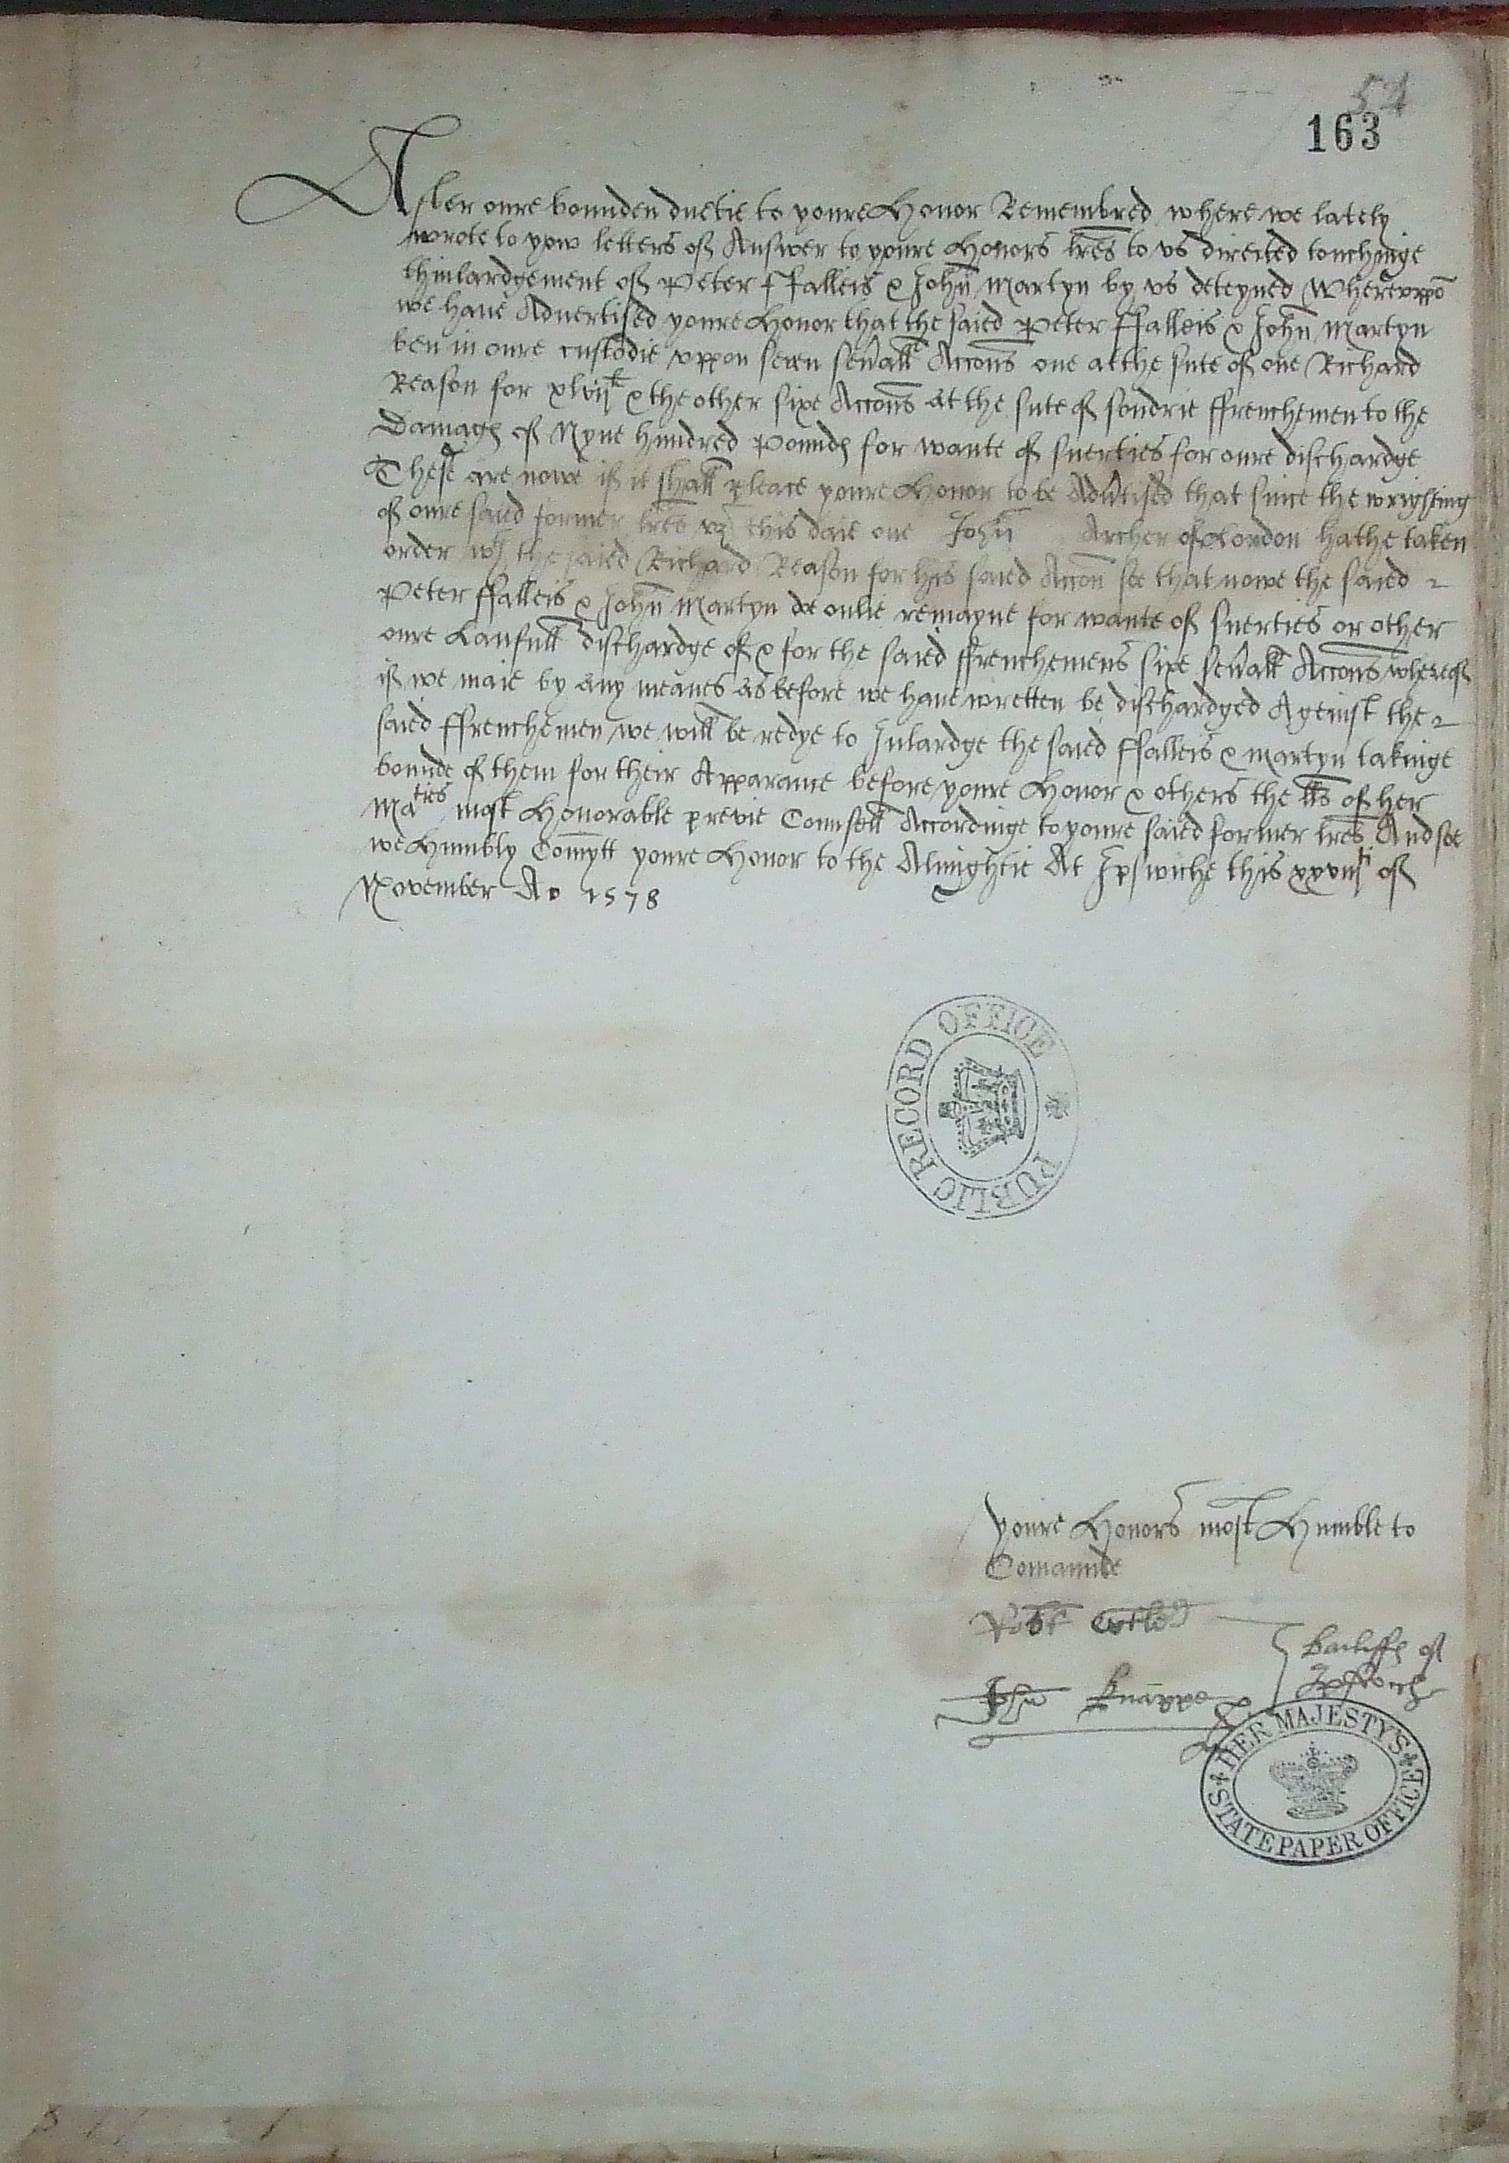 54
163
After oure bounden duetie to youre Honor Remembred where we lately
wrote to yow letters of Answer to youre Honors lres to vs directed touchinge
thinlardgement of Peter ffalleis & John Martyn by vs deteyned Wherevppo
we haue Aduertised youre Honor that the saied Peter ffalleis & John Martyn
ben in oure custodie vppon seven seuall Accons one at the sute of one Richard
Reason for xlvij & the other sixe Accons at the sute of sondrie ffrenchemen to the
Damages of Nyne hundred Poundes for wante of suerties for oure dischardge
These are nowe if it shall please youre Honor to be Adutised that since the wrighting
of oure saied former lres vz this daie one John Archer of London hathe taken
order wth the saied Richard Reason for his saied Accon soe that nowe the saied
Peter ffalleis & John Martyn doe onlie remayne for wante of suerties or other
oure Laufull dischardge of & for the saied ffrenchemens sixe seuall Accons whereof
if we maie by any meanes as before we haue wretten be dischardged Ageinst the
saied ffrenchemen we will be redye to Inlardge the saied ffalleis & Martyn takinge
bounde of them for their Apparance before youre Honor & others the lls of her
Maties most Honorable previe Counsell Accordinge to youre saied former lres And soe
we Humbly Comytt youre Honor to the Almightie At Ipswiche this xxviijti of
November Ao 1578
PUBLIC RECORD OFFICE
youre Honors most Humble to
Comaunde
Robt Cutler
Jhn Knappe
Bailiffes of
Ipswich
HER MAJESTY'S
STATE PAPER OFFICE